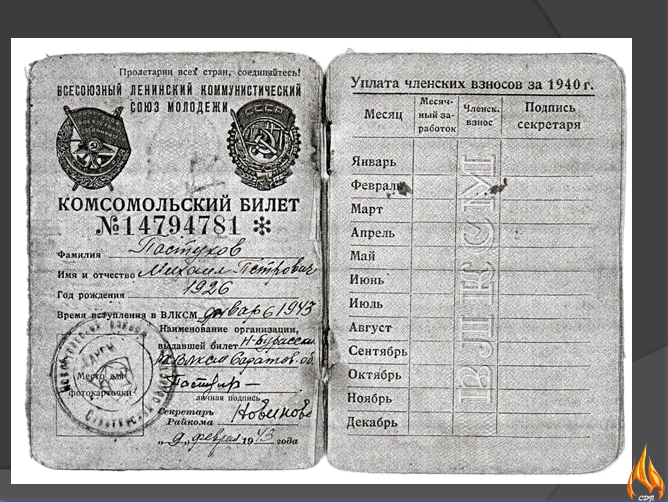 Пролетарии всех стран, соединяйтесь!
ВСЕСОЮЗНЫЙ ЛЕНИНСКИЙ КОММУНИСТИЧЕСКИЙ
СОЮЗ МОЛОДЕЖИ
СССР
КОМСОМОЛЬСКИЙ БИЛЕТ
№14794781 *
Фамилия Пастухов
Имя и отчество Михаил Петрович
Год рождения 1926
Время вступления в ВЛКСМ январь 1943
Наименование организации,
выдавшей билет
РК ВЛКСМ Саратов. об.
Место для
фотокарточки
личная подпись
Секретарь
Райкома
"9" февраля 1943 года
Уплата членских взносов за 1940 г.
Месяц
Месяч-
ный за-
работок
Членск.
взнос
Подпись
секретаря
Январь
Февраль
Март
Апрель
Май
Июнь
Июль
Август
Сентябрь
Октябрь
Ноябрь
Декабрь
ВЛКСМ
CDR